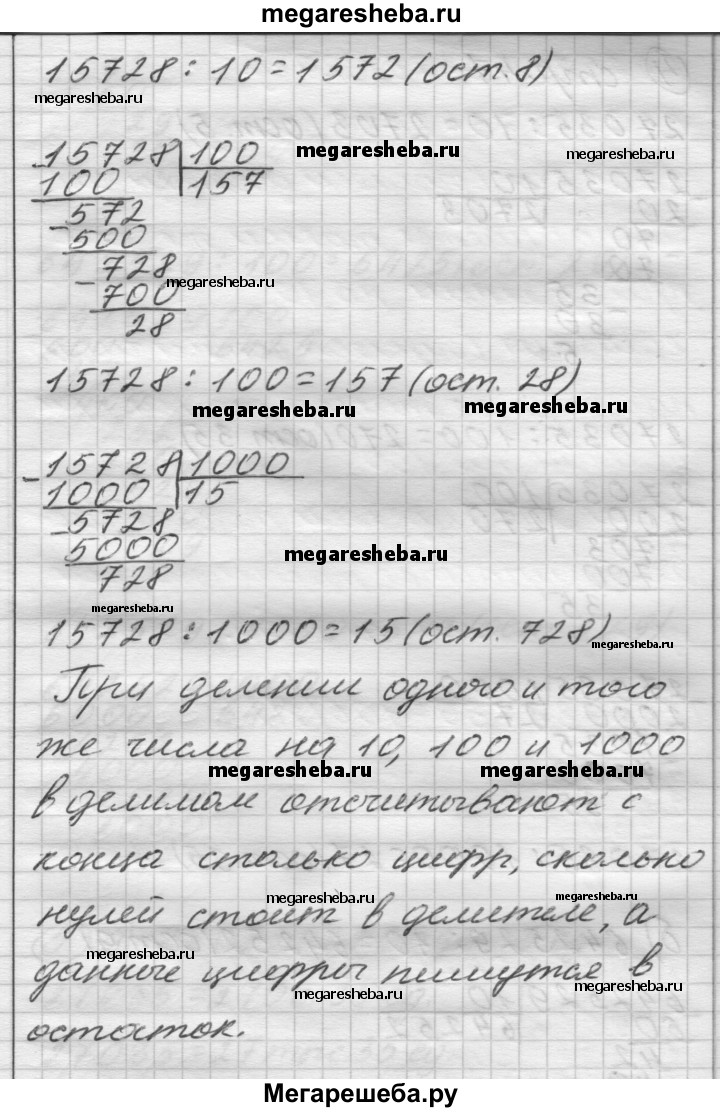 megaresheba.ru
15728 : 10 = 1572 (ост. 8)
megaresheba.ru
megaresheba.ru
megaresheba.ru
- 15728 | 100
100 | 157
- 572
500
- 728
megaresheba.ru
700
28
15728 : 100 = 157 (ост. 28)
megaresheba.ru
megaresheba.ru
- 15728 | 1000
1000 | 15
- 5728
5000
megaresheba.ru
728
megaresheba.ru
15728 : 1000 = 15 (ост. 728)
megaresheba.ru
При делении одного и того
же числа на 10, 100 и 1000
megaresheba.ru
megaresheba.ru
в делимом отсчитывают с
конца столько цифр, сколько
megaresheba.ru
megaresheba.ru
нулей стоит в делителе, а
megaresheba.ru
данные цифры пишутся в
megaresheba.ru
megaresheba.ru
остаток.
Мегарешеба.ру